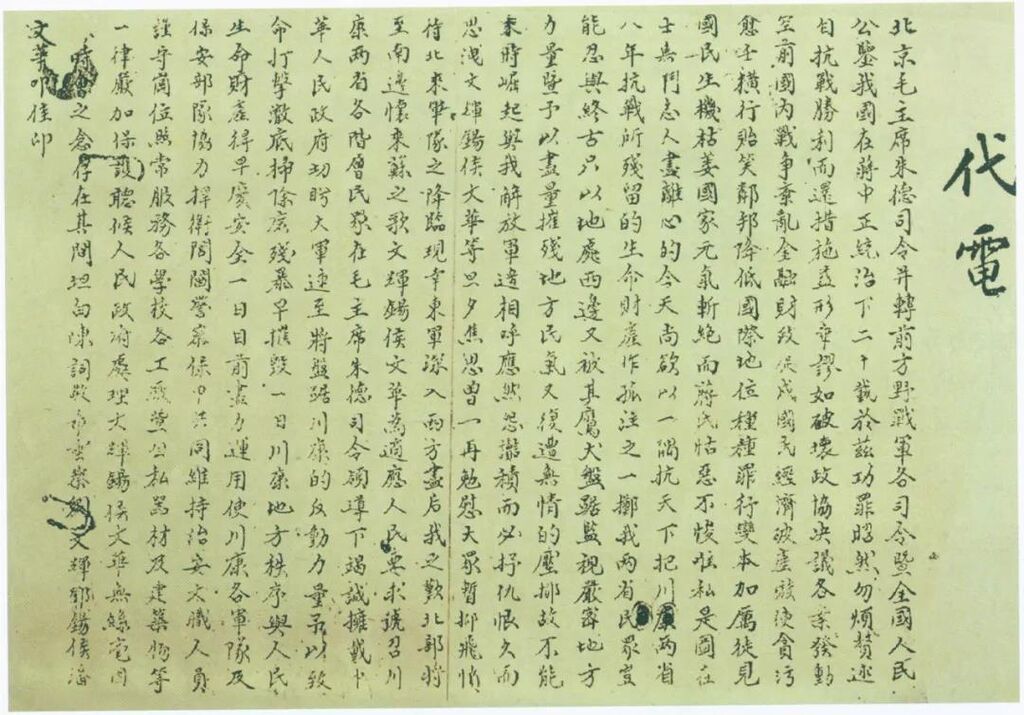 代電
北京毛主席朱德司令并轉前方野戰軍各司令暨全國人民
公鑒我國在蔣中正統治下二十載於茲功罪昭然勿煩贅述
自抗戰勝利而還措施益形乖謬如破壞政協決議各案發動
空前國內戰爭紊亂金融財政促成國民經濟破產縱使貪污
愈壬橫行貽笑鄰邦降低國際地位種種罪行變本加厲徒見
國民生機枯萎國家元氣斬絕而蔣氏怙惡不悛惟私是圖在
士無鬥志人盡離心的今天尚欲以一隅抗天下把川康兩省
八年抗戰所殘留的生命財產作孤注之一擲我兩省民眾豈
能忍與終古只以地處西邊又被其鷹犬盤踞監視嚴密地方
力量暨予以盡量摧殘地方民氣又復遭無情的壓抑故不能
來時崛起與我解放軍遙相呼應然怨讟積而必抒仇恨久而
思洩文輝錫侯文華等旦夕焦思曾一再勉慰大眾暫抑飛悄
待北來軍隊之降臨現幸東軍深入西方盡后我之歎北部將
至南邊懷來蘇之歌文輝錫侯文華為適應人民要求號召川
康兩省各階層民眾在毛主席朱德司令領導下竭誠擁戴中
華人民政府切盼大軍速至將盤踞川康的反動力量予以致
命打擊澈底掃除庶殘暴早摧毀一日川康地方秩序與人民
生命財產得早獲安全一日目前盡力運用使川康各軍隊及
保安部隊協力捍衛閭閻營業保中共同維持治安文職人員
謹守崗位照常服務各學校各工廠黨公私器材及建築物等
一律嚴加保護聽候人民政府處理文輝錫侯文華無絲毫
之念存在其間坦白陳詞敬希垂察 文輝鄧錫侯潘
文華叩佳印